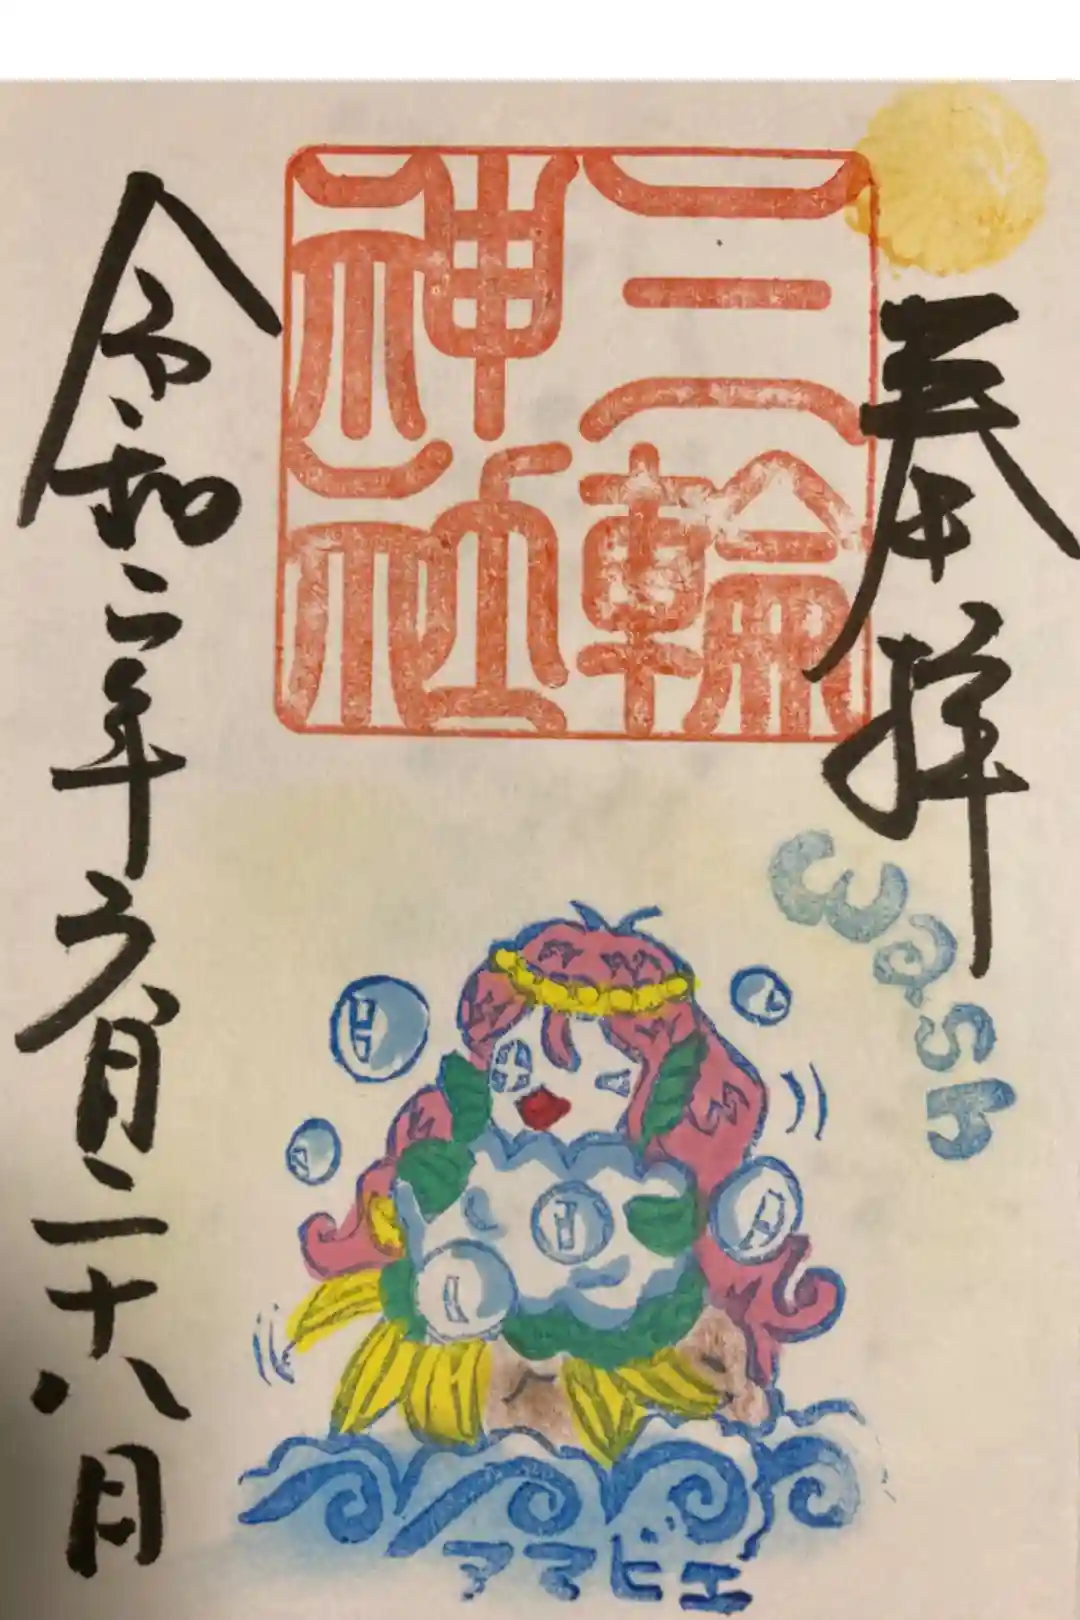 奉拝
三輪
神社
wash
アマビエ
令和二年六月二十八日